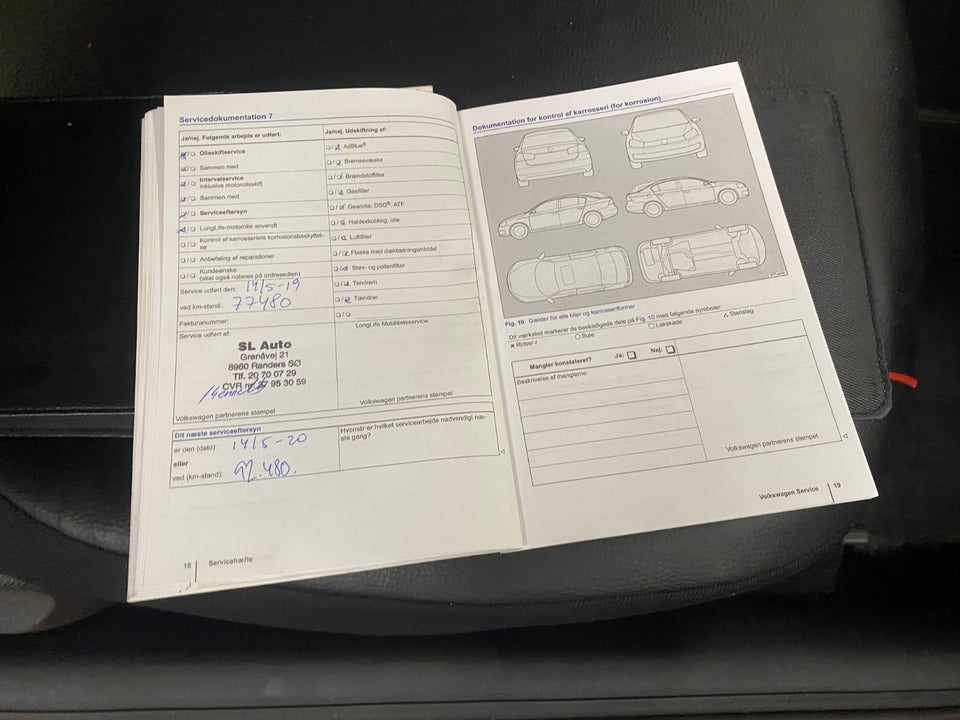 Servicedokumentation 7
Ja/nej. Følgende arbejde er udført:
Olieskiftservice
Sammen med
Intervalservice
inklusive motorolieskift
Sammen med
Serviceeftersyn
LongLife-motorolie anvendt
Kontrol af karrosseriets korrosionsbeskyttel-
se
Anbefaling af reparationer
Kundeønske
(skal også noteres på ordresedlen)
Service udført den: 14/5-19
ved km-stand: 77480
Fakturanummer:
Service udført af:
SL Auto
Grenåvej 21
8960 Randers SØ
Tlf. 20 70 07 29
CVR nr. 37 95 30 59
Volkswagen partnerens stempel
Ja/nej. Udskiftning af:
AdBlue®
Bremsevæske
Brændstoffilter
Gasfilter
Gearolie: DSG®, ATF
Haldexkobling: olie
Luftfilter
Flaske med dæktætningsmiddel
Støv- og pollenfilter
Tandrem
Tændrør
LongLife Mobilitetsservice:
Volkswagen partnerens stempel
Dit næste serviceeftersyn
er den (dato): 14/5-20
eller
ved (km-stand): 92.480.
Hvornår er hvilket servicearbejde nødvendigt næ-
ste gang?
18 Servicehæfte
Dokumentation for kontrol af karrosseri (for korrosion)
Fig. 10 Gælder for alle biler og karrosseriformer
Dit værksted markerer de beskadigede dele på Fig. 10 med følgende symboler:
× Ridse/-r ○ Bule □ Lakskade △ Stenslag
Mangler konstateret? Ja: Nej:
Beskrivelse af manglerne:
Volkswagen partnerens stempel
Volkswagen Service 19